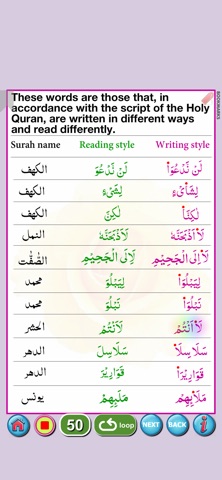 These words are those that, in
accordance with the script of the Holy
Quran, are written in different ways
and read differently.
Surah name Reading style Writing style
الكهف لَنْ نَّدْعُوَ لَنْ نَّدْعُوَا۟
الكهف لِشَىْءٍ لِشَا۟ىْءٍ
الكهف لٰكِنَّ لٰكِنَّا۟
النمل لَاَذْبَحَنَّهٗ لَا۟اَذْبَحَنَّهٗ
الصّٰفّٰت لَاِلَى الْجَحِيْمِ لَا۟اِلَى الْجَحِيْمِ
محمد لِيَبْلُوَ لِيَبْلُوَا۟
محمد نَبْلُوَ نَبْلُوَا۟
الحشر لَاَنْتُمْ لَا۟اَنْتُمْ
الدهر سَلَاسِلَ سَلَاسِلَا۟
الدهر قَوَارِيْرَ قَوَارِيْرَا۟
يونس مَلَئِهِمْ مَلَا۟ئِهِمْ
BOOKMARKS
50 loop NEXT BACK i